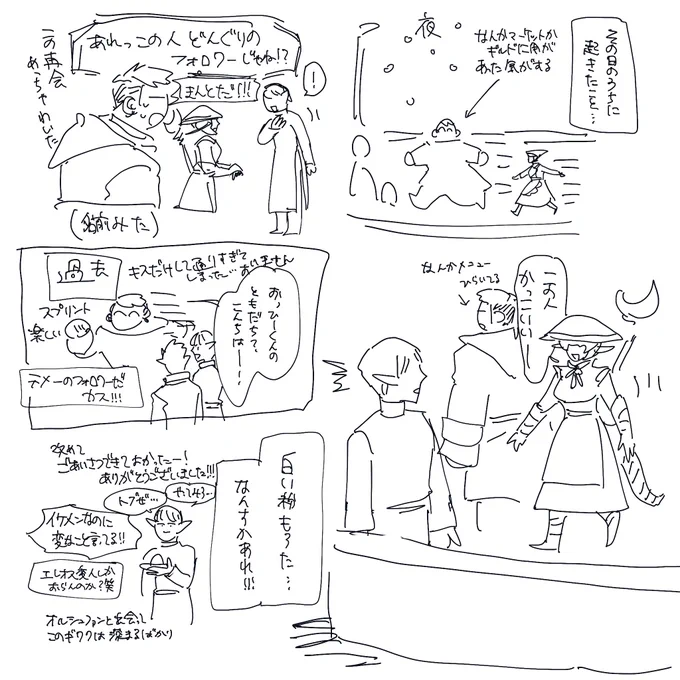 その日のうちに
起きたこと…
夜
なんかマーケットか
ギルドに用が
あった気がする
あれっこの人どんぐりの
フォロワーじゃね!?
ほんとだ!!!
!
この再会
めっちゃわいた
(名前みた)
このひと
かっこいいー
なんかメニュー
ひらいてる
過去
キスだけして通りすぎて
しまった…すいません
おっひーくんの
ともだち?
こんちはー!!
スプリント
楽しい
テメーのフォロワーだ
カス!!!
白い粉もろた…
なんすかあれ!!!
改めて
ごあいさつできてよかったー!
ありがとうございました!!!
トブぜ…
やってみろ…
イケメンなのに
変なこと言ってる!!
エレオス変人しか
おらんのか?笑
オルシュファンと出会って
このギワクは深まるばかり